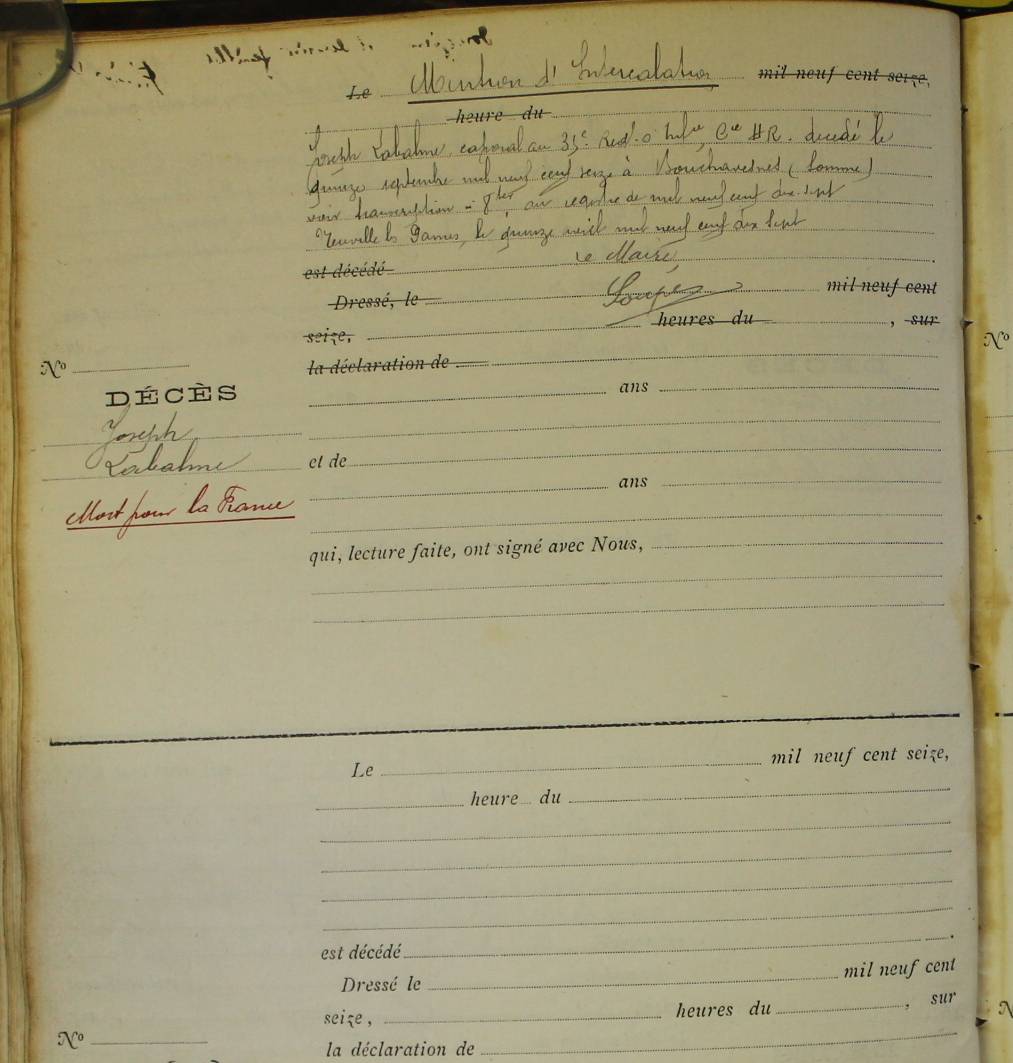 Le Mention d'Intercalation mil neuf cent seize,
heure du
Joseph Labalme, caporal au 35e Reg^t d'Inf^ie C^ie H.R. décédé le
quinze septembre mil neuf cent seize à Bouchavesnes (Somme)
voir transcription n° 8 ter, au registre de mil neuf cent dix-sept
Neuville les Dames, le quinze avril mil neuf cent dix sept
est décédé Le Maire, .
Dressé, le mil neuf cent
seize, heures du , sur
la déclaration de
N°
DÉCÈS
Joseph
Labalme
Mort pour la France
ans
et de
ans
qui, lecture faite, ont signé avec Nous,
Le mil neuf cent seize,
heure du
est décédé .
Dressé le mil neuf cent
seize, heures du , sur
N°
la déclaration de
N°
N